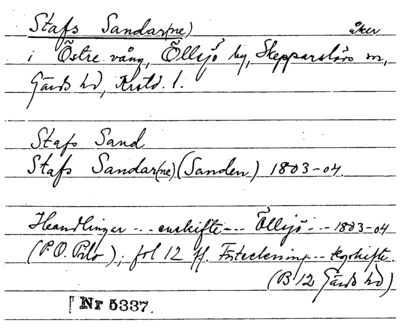 Stafs Sandar(ne) åker
i Östre vång, Öllsjö by, Skepparslövs sn,
Gärds hd, Krstd. l.
Stafs Sand
Stafs Sandar(ne) (Sanden) 1803-04.
Handlingar --- enskifte --- Öllsjö --- 1803-04
(P.O. Pilo); fol 12 ff. Förteckning --- ägoskifte.
(B 12 Gärds hd)
Nr 5337.